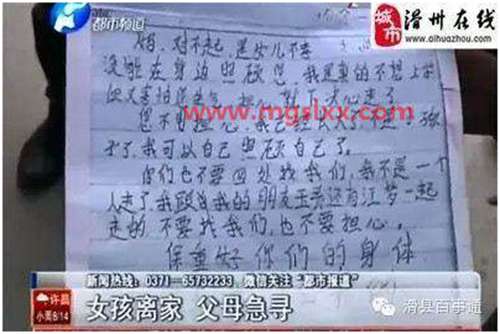 都市频道
城市
滑州在线
www.aihuazhou.com
妈 对不起 是女儿不孝
没能在身边照顾您 我是真的不想上学
您不用担心 我已经长大了不是小孩
子了,我可以自己照顾自己了。
你们也不要四处找我们,我不是一个
人走了我跟我的朋友王 还有江梦一起
走的 不要找我们,也不要担心。
保重好你们的身体
www.mgslxx.com
新闻热线:0371-65732233 微信关注“都市报道”
许昌
小雨8/14
女孩离家 父母急寻
滑县百事通